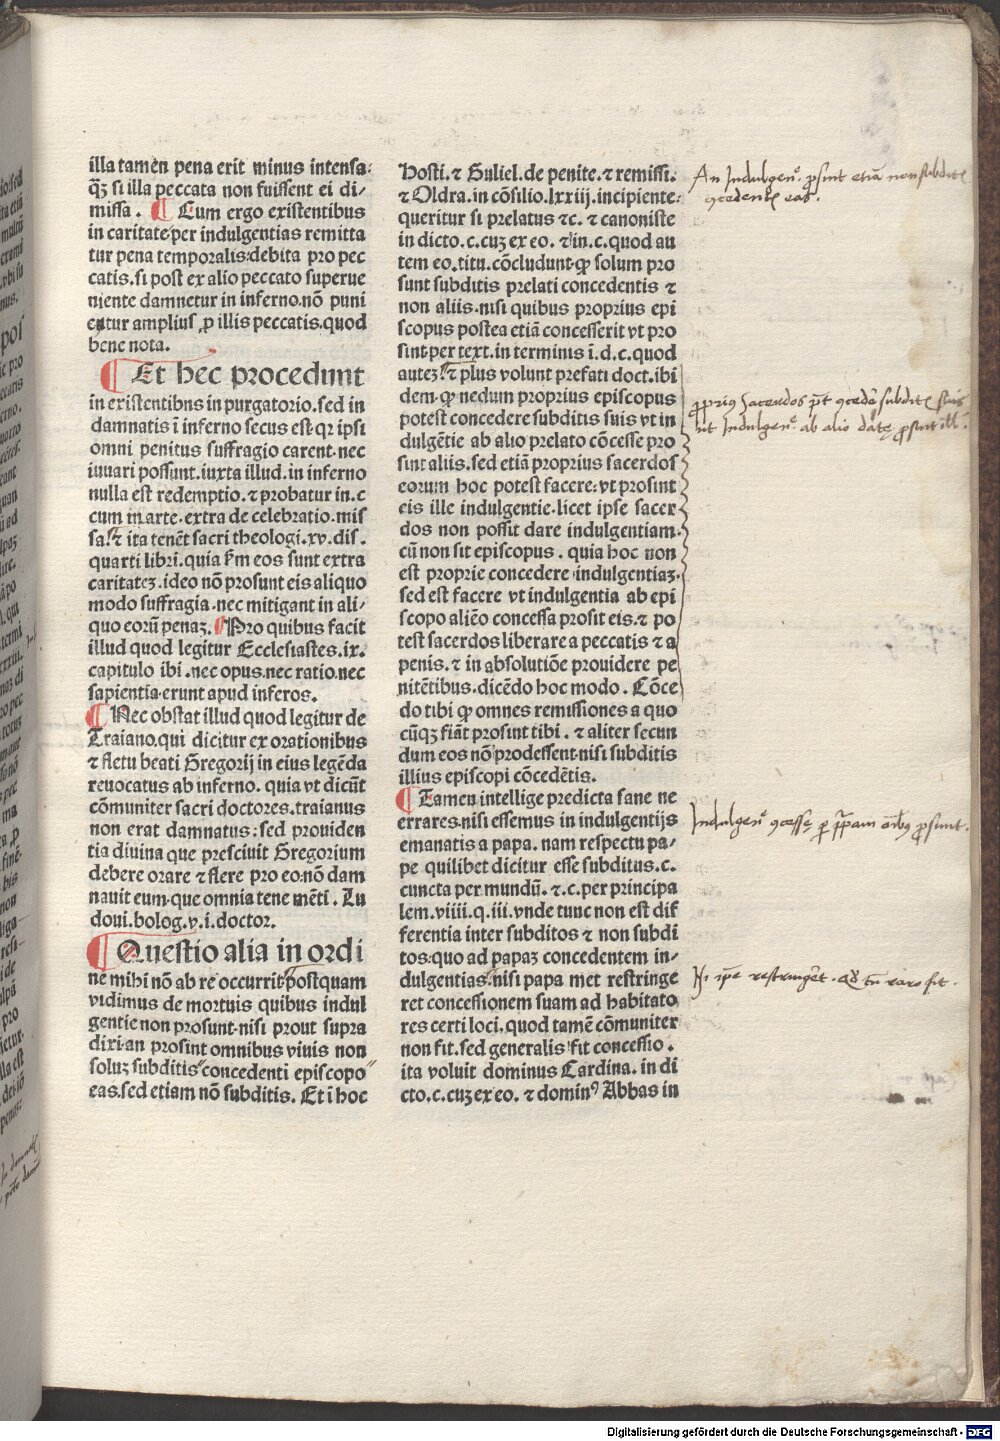 illa tamen pena erit minus intensa:
qȝ̃ si illa peccata non fuissent ei di/
missa. ¶ Cum ergo existentibus
in caritate per indulgentias remitta
tur pena temporalis debita pro pec
catis. si post ex alio peccato superue
niente damnetur in inferno. nō puni
entur amplius ꝓ illis peccatis. quod
bene nota.
¶ Et hec procedunt
in existentibns in purgatorio. sed in
damnatis ī inferno secus est qꝛ ipsi
omni penitus suffragio carent. nec
iuuari possunt. iuxta illud. in inferno
nulla est redemptio. ⁊ probatur in. c
cum in arte. extra de celebratio. mis
sa. ⁊ ita tenēt sacri theologi. xv. dis.
quarti libri. quia fm̄ eos sunt extra
caritateȝ. ideo nō prosunt eis aliquo
modo suffragia. nec mitigant in ali/
quo eorū penaȝ. ¶ Pro quibus facit
illud quod legitur Ecclesiastes. ix.
capitulo ibi. nec opus. nec ratio. nec
sapientia erunt apud inferos.
¶ Nec obstat illud quod legitur de
Traiano. qui dicitur ex orationibus
⁊ fletu beati Gregorij in eius legēda
reuocatus ab inferno. quia vt dicūt
cōmuniter sacri doctores. traianus
non erat damnatus: sed prouiden
tia diuina que presciuit Gregorium
debere orare ⁊ flere pro eo. nō dam
nauit eum. que omnia tene mēti. Lu
doui. bolog. v. i. doctor.
¶ Questio alia in ordi
ne mihi nō ab re occurrit postquam
vidimus de mortuis quibus indul
gentie non prosunt. nisi prout supra
dixi. an prosint omnibus viuis non
soluȝ subditis concedenti episcopo
eas. sed etiam nō subditis. Et ī hoc
Hosti. ⁊ Guliel. de penite. ⁊ remissi.
⁊ Oldra. in cōsilio. lxxiij. incipiente:
queritur si prelatus ⁊c. ⁊ canoniste
in dicto. c. cuȝ ex eo. ⁊ in. c. quod au
tem eo. titu. cōcludunt ꝙ solum pro
sunt subditis prelati concedentis ⁊
non aliis. nisi quibus proprius epi
scopus postea etiā concesserit vt pro
sint per text. in terminis i. d. c. quod
auteȝ. ⁊ plus volunt prefati doct. ibi
dem. ꝙ nedum proprius episcopus
potest concedere subditis suis vt in
dulgētie ab alio prelato cōcesse pro
sint aliis. sed etiā proprius sacerdos
eorum hoc potest facere: vt prosint
eis ille indulgentie. licet ipse sacer
dos non possit dare indulgentiam.
cū non sit episcopus. quia hoc non
est proprie concedere indulgentiaȝ.
sed est facere vt indulgentia ab epi
scopo aliēo concessa prosit eis. ⁊ po
test sacerdos liberare a peccatis ⁊ a
penis. ⁊ in absolutiōe prouidere pe
nitētibus. dicēdo hoc modo. Cōce
do tibi ꝙ omnes remissiones a quo
cūqȝ fiāt prosint tibi. ⁊ aliter secun
dum eos nō prodessent. nisi subditis
illius episcopi cōcedētis.
¶ Tamen intellige predicta sane ne
errares. nisi essemus in indulgentijs
emanatis a papa. nam respectu pa/
pe quilibet dicitur esse subditus. c.
cuncta per mundū. ⁊. c. per principa
lem. viiii. q. iii. vnde tunc non est dif
ferentia inter subditos ⁊ non subdi
tos: quo ad papaȝ concedentem in/
dulgentias. nisi papa met restringe
ret concessionem suam ad habitato
res certi loci. quod tamē cōmuniter
non fit. sed generalis fit concessio.
ita voluit dominus Cardina. in di
cto. c. cuȝ ex eo. ⁊ dominꝰ Abbas in
An Indulgen. prosint etiā non subdit
proprius sacerdos
ut Indulgen. ab alio
Indulgen.
restringeret. raro fit.
Digitalisierung gefördert durch die Deutsche Forschungsgemeinschaft - DFG